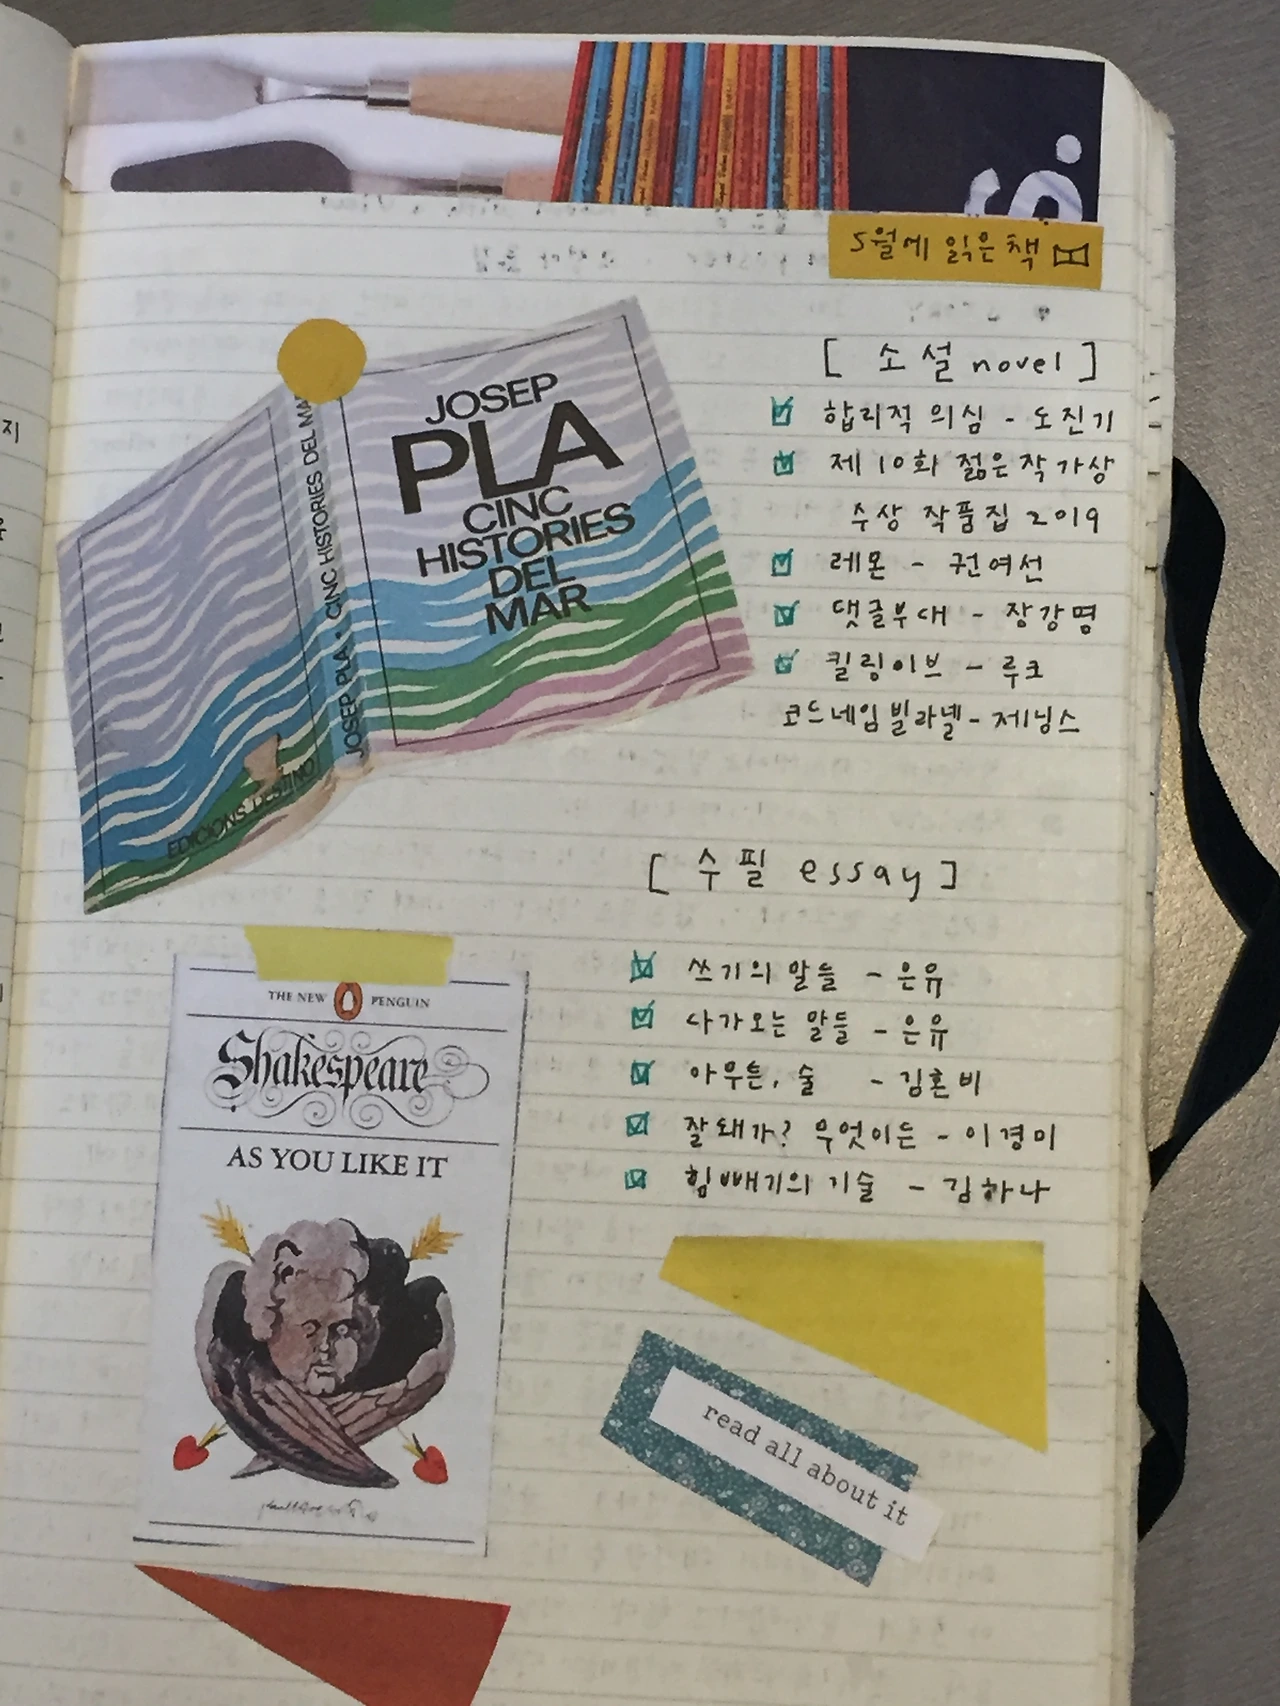 5월에 읽은 책
[ 소설 novel ]
합리적 의심 - 도진기
제 10회 젊은작가상
수상 작품집 2019
레몬 - 권여선
댓글부대 - 장강명
킬링이브 - 루크
코드네임빌라넬 - 제닝스
JOSEP
PLA
CINC
HISTORIES
DEL
MAR
JOSEP PLA • CINC HISTORIES DEL MAR
EDICIONS DESTINO
[ 수필 essay ]
쓰기의 말들 - 은유
다가오는 말들 - 은유
아무튼, 술 - 김혼비
잘돼가? 무엇이든 - 이경미
힘 빼기의 기술 - 김하나
THE NEW PENGUIN
Shakespeare
AS YOU LIKE IT
read all about it